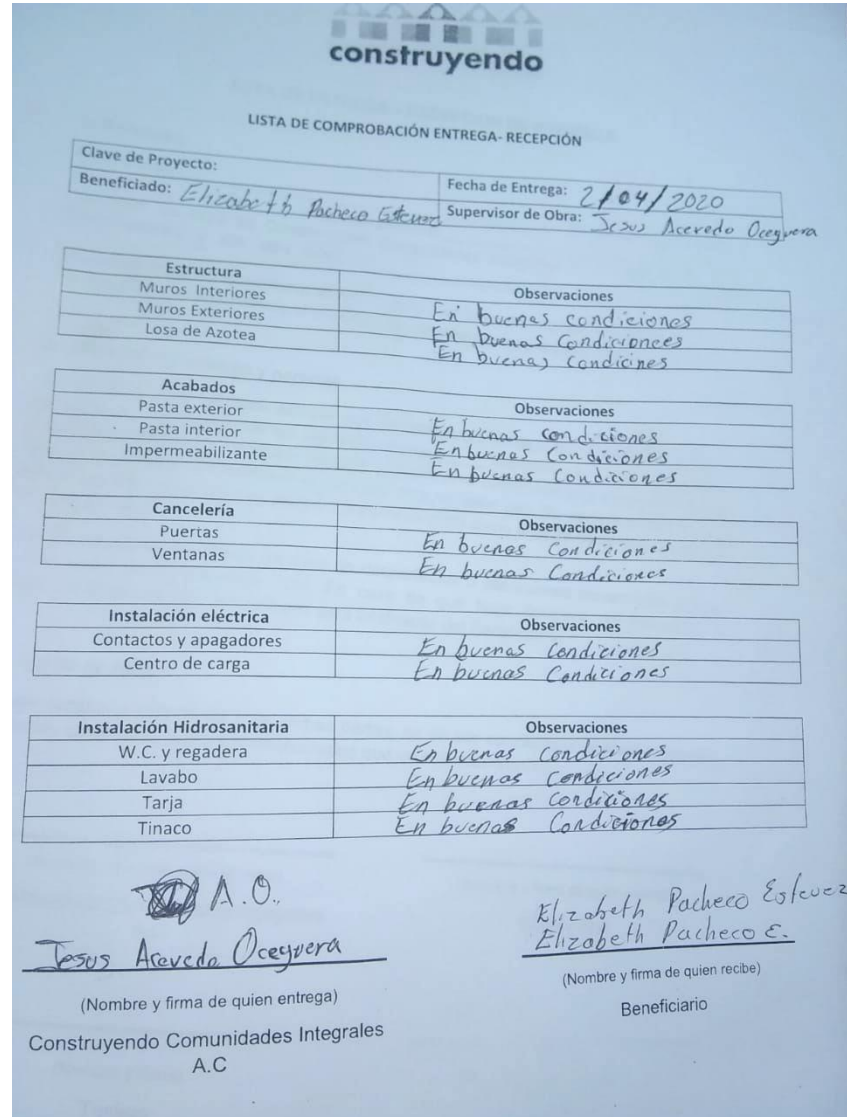 construyendo
LISTA DE COMPROBACIÓN ENTREGA- RECEPCIÓN
Clave de Proyecto:
Fecha de Entrega: 2/04/2020
Beneficiado: Elizabeth Pacheco Estevez
Supervisor de Obra: Jesus Acevedo Oceguera
Estructura Observaciones
Muros Interiores En buenas condiciones
Muros Exteriores En buenas Condicionees
Losa de Azotea En buenas Condicines
Acabados Observaciones
Pasta exterior En buenas condiciones
Pasta interior En buenas Condiciones
Impermeabilizante En buenas Condiciones
Cancelería Observaciones
Puertas En buenas Condiciones
Ventanas En buenas Condiciones
Instalación eléctrica Observaciones
Contactos y apagadores En buenas Condiciones
Centro de carga En buenas Condiciones
Instalación Hidrosanitaria Observaciones
W.C. y regadera En buenas Condiciones
Lavabo En buenas Condiciones
Tarja En buenas Condiciones
Tinaco En buenas Condiciones
A.O.
Jesus Acevedo Oceguera
(Nombre y firma de quien entrega)
Construyendo Comunidades Integrales
A.C
Elizabeth Pacheco Estevez
Elizabeth Pacheco E.
(Nombre y firma de quien recibe)
Beneficiario